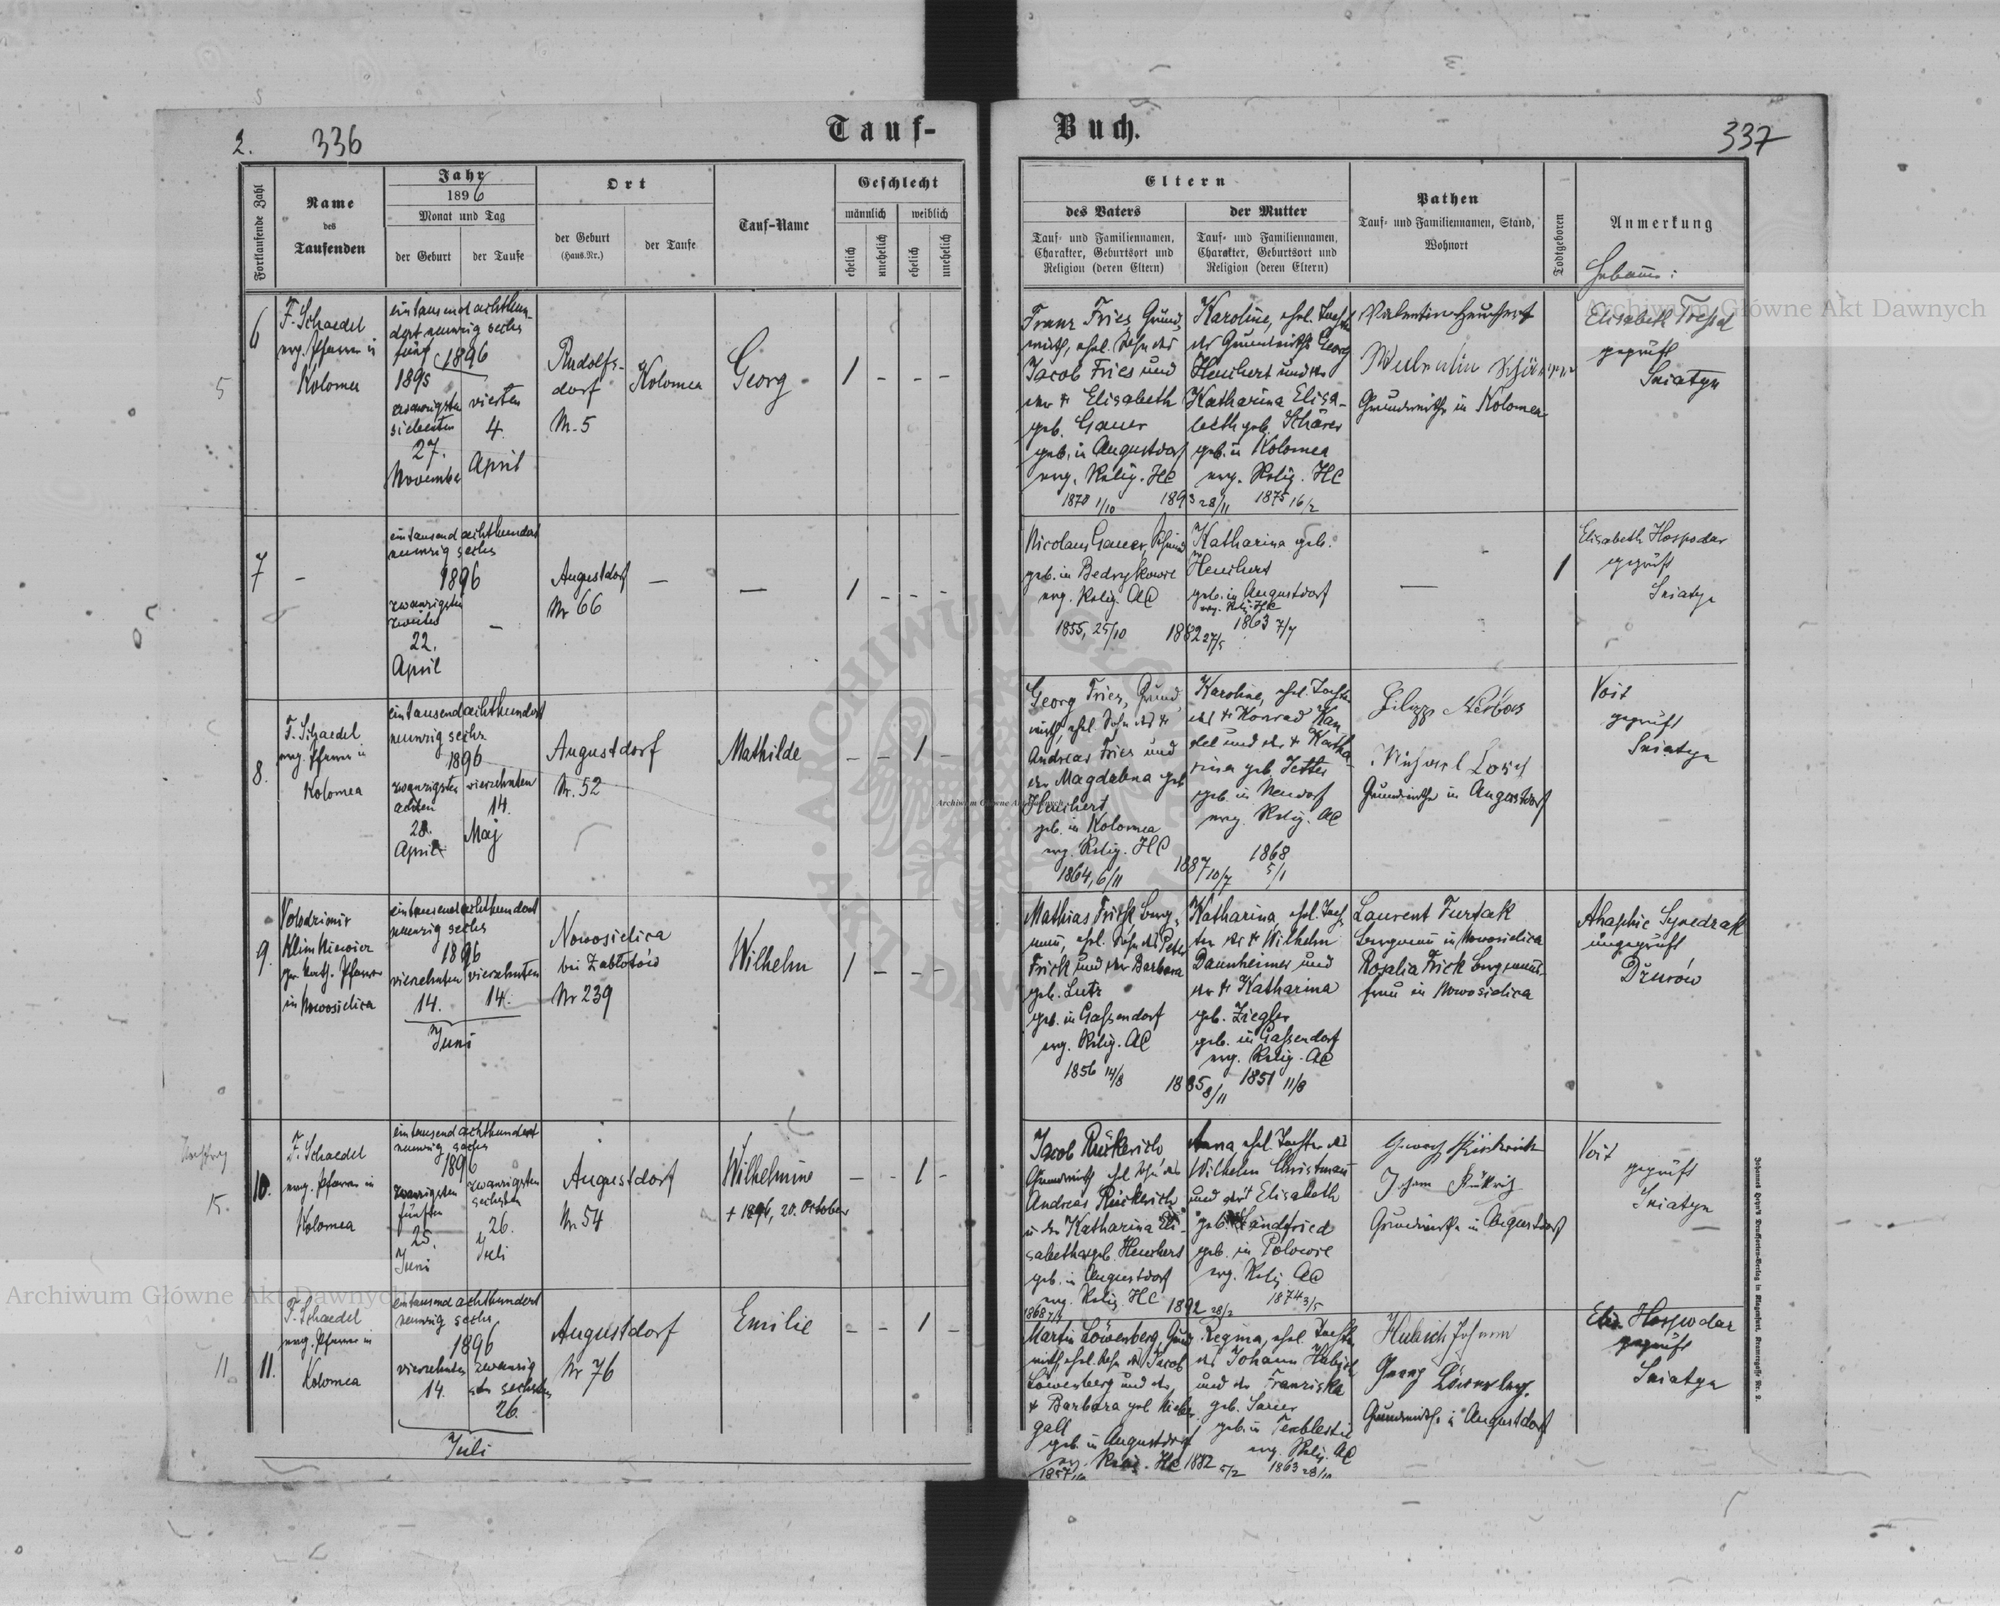 2.
336
Tauf-
Fortlaufende Zahl
Name
des
Taufenden
Jahr
1896
Monat und Tag
der Geburt
der Taufe
Ort
der Geburt
(Haus-Nr.)
der Taufe
Tauf-Name
Geschlecht
männlich
weiblich
ehelich
unehelich
ehelich
unehelich
6
F. Schaedel
evg. Pfarrer in
Kolomea
eintausend achthun-
dert neunzig sechs
fünf 1896
1895
siebenten
27.
November
vierten
4.
April
Rudolfs-
dorf
Nr. 5
Kolomea
Georg
1 - - -
5
7
-
eintausend achthundert
neunzig sechs
1896
zwanzigsten
22.
April
-
Augustdorf
Nr 66
-
-
1 - - -
8.
F. Schaedel
evg. Pfarrer in
Kolomea
eintausend achthundert
neunzig sechs
1896
zwanzigsten
achten
28.
April
vierzehnten
14.
Maj
Augustdorf
Nr. 52
Mathilde
- - 1 -
9.
Volodzimir
gr. kath. Pfarrer
in Nowosielica
eintausend achthundert
neunzig sechs
1896
vierzehnten
14.
vierzehnten
14.
Juni
Nowosielica
bei Zabłotów
Nr 239
Wilhelm
1 - - -
15.
10.
F. Schaedel
evg. Pfarrer in
Kolomea
eintausend achthundert
neunzig sechs
1896
zwanzigsten
fünften
25.
Juni
zwanzigsten
sechsten
26.
Juli
Augustdorf
Nr. 54
Wilhelmine
+ 1896, 20. October
- - 1 -
11.
11.
F. Schaedel
evg. Pfarrer in
Kolomea
eintausend achthundert
neunzig sechs
1896
vierzehnten
14.
zwanzig
sechsten
26.
Juli
Augustdorf
Nr 76
Emilie
- - 1 -
Buch.
337
Eltern
des Vaters
Tauf- und Familiennamen,
Charakter, Geburtsort und
Religion (deren Eltern)
der Mutter
Tauf- und Familiennamen,
Charakter, Geburtsort und
Religion (deren Eltern)
Pathen
Tauf- und Familiennamen, Stand,
Wohnort
Todtgeboren
Anmerkung
Franz Fries, Grund-
wirth, ehel. Sohn des
Jacob Fries und
der + Elisabeth
geb. Gauer
geb. in Augustdorf
evg. Relig. HC
1870 1/10
1893 28/11
Karoline, ehel. Tochter
des Grundwirths Georg
Heuchert und der
Katharina Elisa-
beth geb. Schärer
geb. in Kolomea
evg. Relig. HC
1875 16/2
Valentin Heuchert
Grundwirthe in Kolomea
Elisabeth
geprüft
Sniatyn
Nicolaus Gauer,
geb. in
evg. Relig. AC
1855, 25/10
1882 27/5
Katharina geb.
Heuchert
geb. in Augustdorf
evg. Relig. HC
1863 7/7
-
1
Elisabeth Hospodar
geprüft
Sniatyn
Georg Fries, Grund-
wirth, ehel. Sohn des +
Andreas Fries und
der Magdalena geb.
Heuchert
geb. in Kolomea
evg. Relig. HC
1864, 6/11
1887 10/7
Karoline, ehel. Tochter
des + Konrad Kan-
del und der + Katha-
rina geb. Jetter
geb. in Neudorf
evg. Relig. AC
1868
5/1
Michael
Grundwirthe in Augustdorf
Voit
geprüft
Sniatyn
Mathias Frick, Berg-
mann, ehel. Sohn des Peter
Frick und der Barbara
geb. Lutz
geb. in Gassendorf
evg. Relig. AC
1856 14/8
1885 8/11
Katharina, ehel. Toch-
ter des + Wilhelm
Dannheimer und
der + Katharina
geb. Ziegler
geb. in Gassendorf
evg. Relig. AC
1851 11/8
Laurent Furtak
Bergmann in Nowosielica
Rozalia Frick Bergmanns-
frau in Nowosielica
ungeprüft
Dżurów
Jacob Rückerich,
Grundwirth, ehel. Sohn des
Andreas Rückerich
u. der Katharina Eli-
sabetha geb. Heuchert
geb. in Augustdorf
evg. Relig. HC
1892 28/2
Anna, ehel. Tochter des
Wilhelm Christmann
und der + Elisabeth
geb. Landfried
geb. in Polowce
evg. Relig. AC
1874 3/5
Grundwirthe in Augustdorf
Voit
geprüft
Sniatyn
Martin Löwenberg, Grund-
wirth, ehel. Sohn des Jacob
Löwenberg und der
+ Barbara geb.
gall
geb. in Augustdorf
evg. Relig. HC
1882 5/2
Regina, ehel. Tochter
des Johann Hubich
und der Franziska
geb. Sauer
geb. in
evg. Relig. AC
1863 28/10
Hubich Johann
Georg Löwenberg
Grundwirthe in Augustdorf
Elis. Hospodar
geprüft
Sniatyn
Archiwum Główne Akt Dawnych
Archiwum Główne Akt Dawnych
Archiwum Główne Akt Dawnych